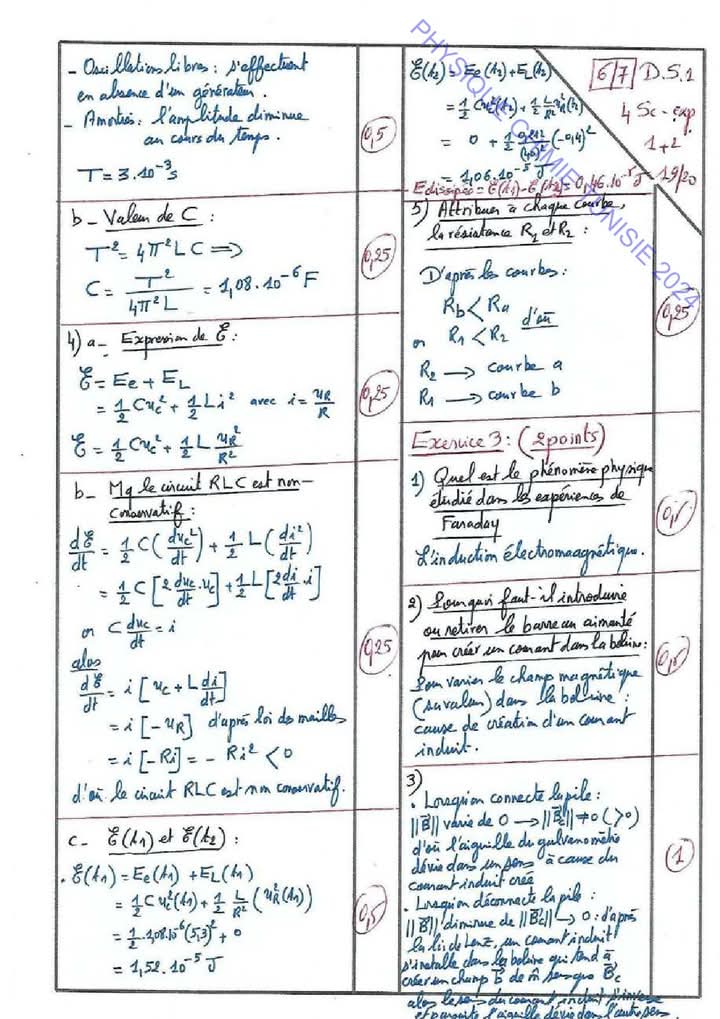 - Oscillations libres : s'effectuent
en absence d'un générateur.
- Amorties : l'amplitude diminue
au cours du temps.
T = 3.10⁻³s
0,5
b - Valeur de C :
T² = 4π²LC ⟹
C = T² / 4π²L = 1,08.10⁻⁶ F
0,25
4) a - Expression de ℰ :
ℰ = Ee + EL
= 1/2 Cuc² + 1/2 Li² avec i = uR/R
ℰ = 1/2 Cuc² + 1/2 L uR²/R²
0,25
b - Mq le circuit RLC est non-
conservatif :
dℰ/dt = 1/2 C(duc²/dt) + 1/2 L(di²/dt)
= 1/2 C[2 duc/dt . uc] + 1/2 L[2 di/dt . i]
or C duc/dt = i
alors
dℰ/dt = i [uc + L di/dt]
= i [-uR] d'après loi des mailles
= i [-Ri] = - Ri² < 0
d'où le circuit RLC est non conservatif.
0,25
c - ℰ(t1) et ℰ(t2) :
. ℰ(t1) = Ee(t1) + EL(t1)
= 1/2 C uc²(t1) + 1/2 L/R² (uR²(t1))
= 1/2 . 1,08.10⁻⁶ (5,3)² + 0
= 1,52.10⁻⁵ J
0,5
ℰ(t2) = Ee(t2) + EL(t2)
= 1/2 Cuc²(t2) + 1/2 L/R² uR²(t2)
= 0 + 1/2 (-0,4)²
= 1,06.10⁻⁵ J
Edissipée = ℰ(t1) - ℰ(t2) = 0,46.10⁻⁵ J
6/7 D.S.1
4 Sc-exp
1+2
19/20
5) Attribuer à chaque courbe,
la résistance R1 et R2 :
D'après les courbes :
Rb < Ra
or R1 < R2 d'où
R2 → courbe a
R1 → courbe b
0,25
Exercice 3 : (2 points)
1) Quel est le phénomène physique
étudié dans les expériences de
Faraday
L'induction électromaagnétique.
0,5
2) Pourquoi faut-il introduire
ou retirer le barreau aimanté
pour créer un courant dans la bobine :
Pour varier le champ magnétique
(sa valeur) dans la bobine :
cause de création d'un courant
induit.
0,5
3)
. Lorsqu'on connecte la pile :
||B|| varie de 0 → ||Bc|| ≠ 0 (>0)
d'où l'aiguille du galvanomètre
dévie dans un sens à cause du
courant induit créé
. Lorsqu'on déconnecte la pile :
||B|| diminue de ||Bc|| → 0 : d'après
la loi de Lenz, un courant induit
s'installe dans la bobine qui tend à
créer un champ b de m̂ sens que Bc
alors le sens du courant induit s'inverse
et par suite l'aiguille dévie dans l'autre sens.
1
PHYSIQUE CHIMIE TUNISIE 2024